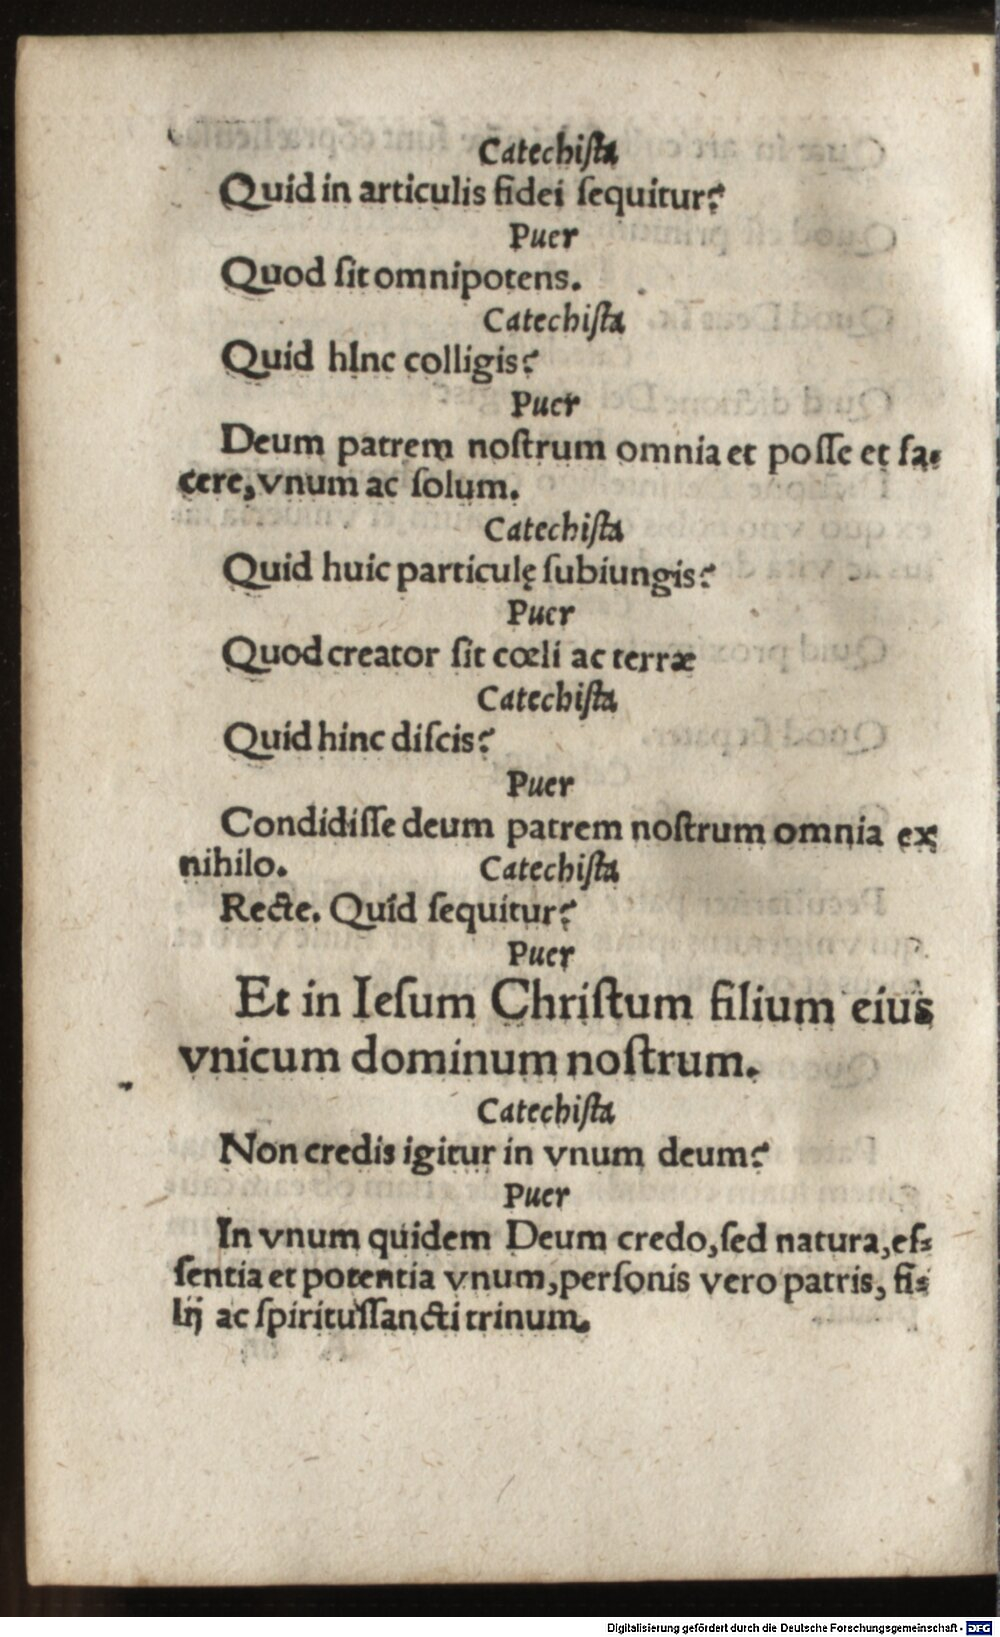 Catechiſta
Quid in articulis fidei ſequitur?
Puer
Quod ſit omnipotens.
Catechiſta
Quid hInc colligis?
Puer
Deum patrem noſtrum omnia et poſſe et fa-
cere, vnum ac ſolum.
Catechiſta
Quid huic particulę ſubiungis?
Puer
Quod creator ſit cœli ac terræ
Catechiſta
Quid hinc diſcis?
Puer
Condidiſſe deum patrem noſtrum omnia ex
nihilo. Catechiſta
Recte. Quid ſequitur?
Puer
Et in Ieſum Chriſtum filium eius
vnicum dominum noſtrum.
Catechiſta
Non credis igitur in vnum deum?
Puer
In vnum quidem Deum credo, ſed natura, eſ-
ſentia et potentia vnum, perſonis vero patris, fi-
lij ac ſpirituſſancti trinum.
Digitalisierung gefördert durch die Deutsche Forschungsgemeinschaft - DFG